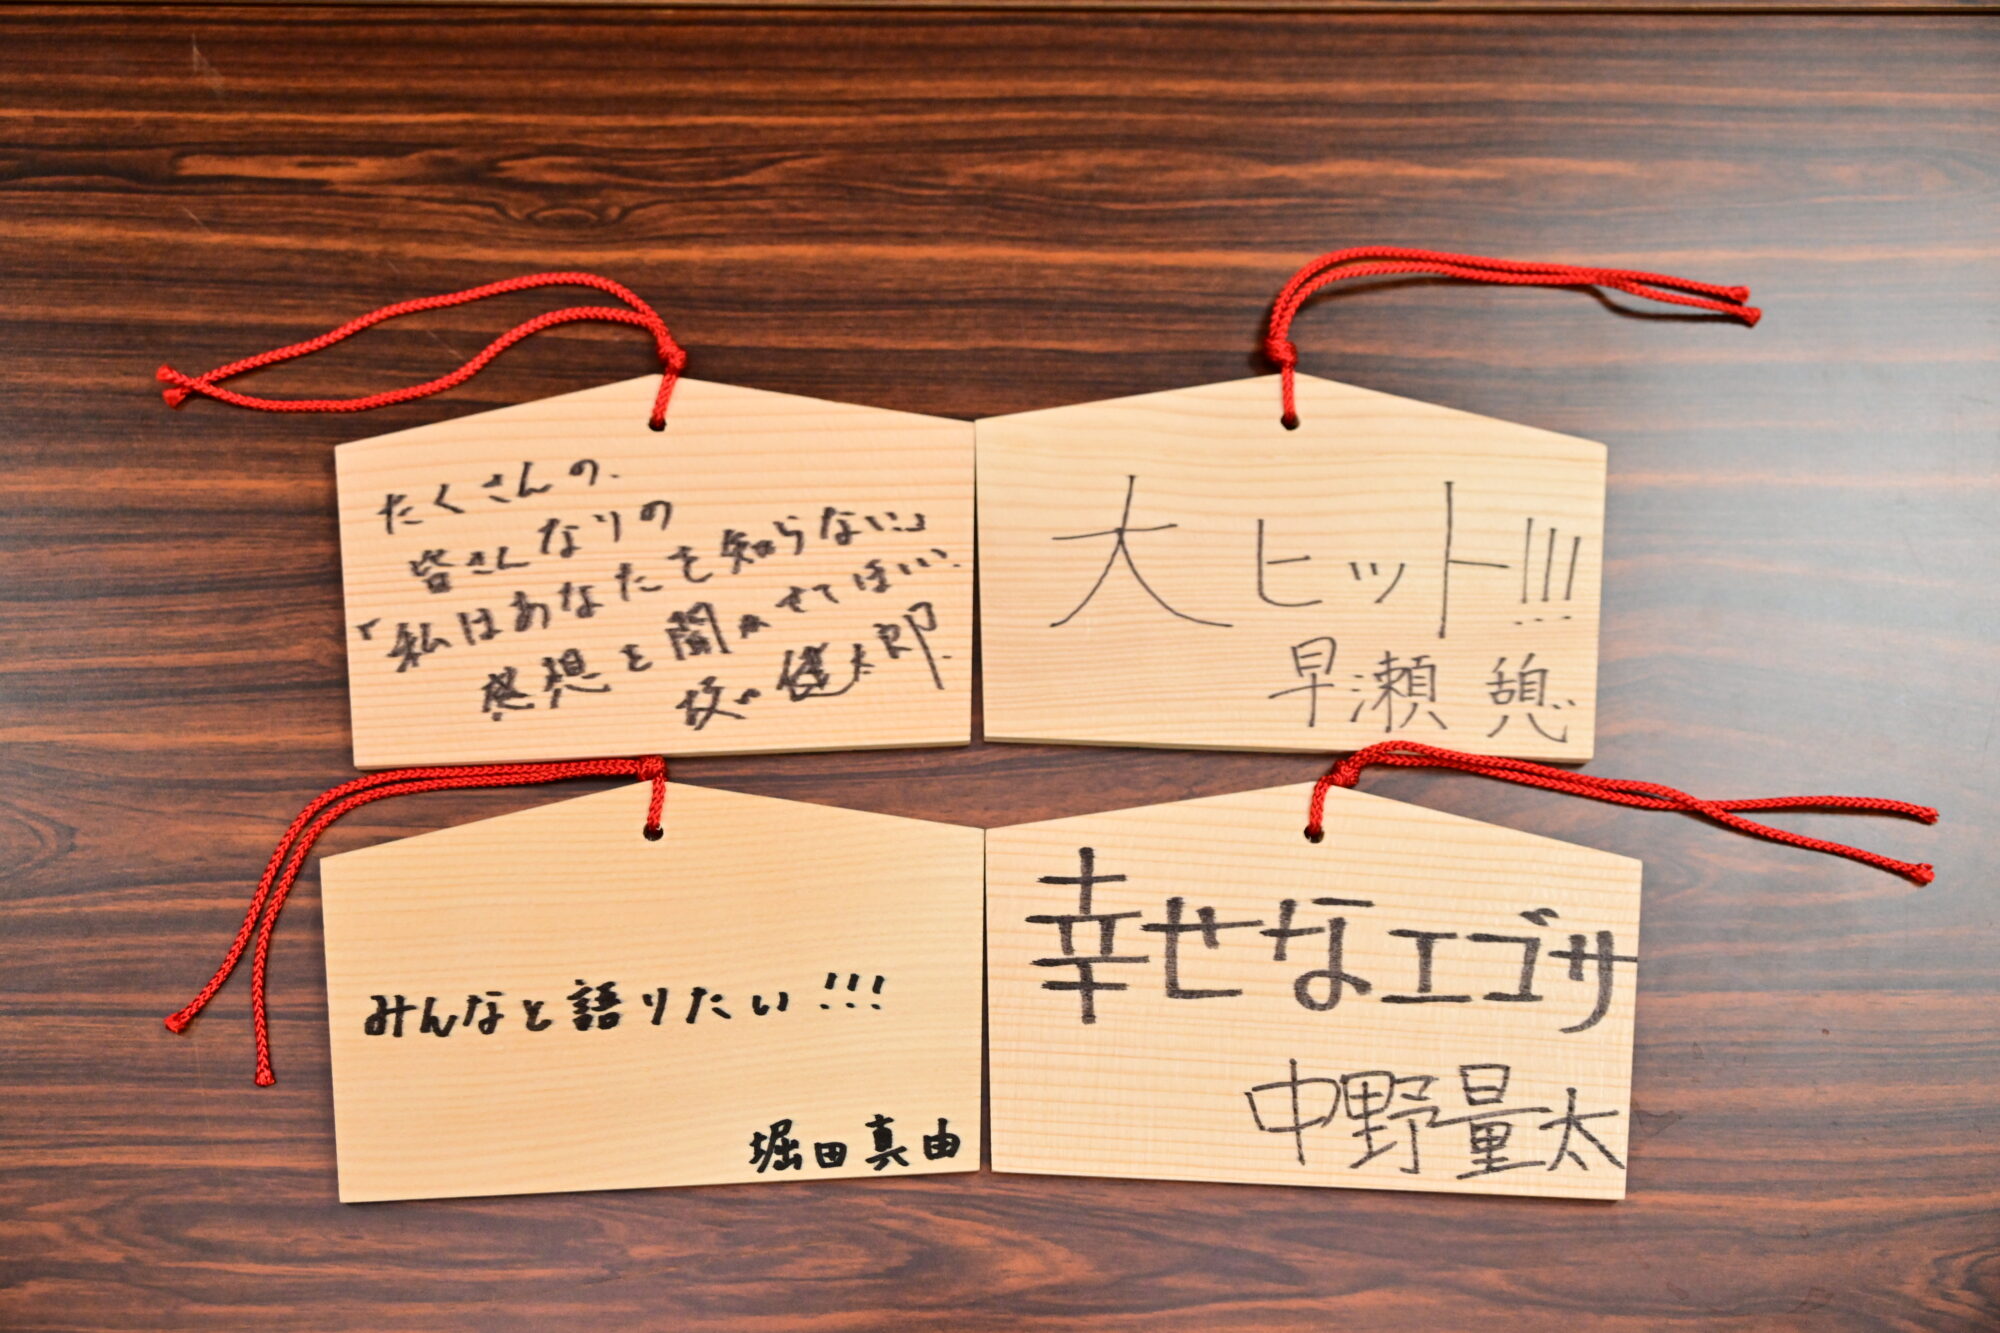 たくさんの、
皆さんなりの
「私はあなたを知らない、」
感想を聞かせてほしい。
坂口健太郎
大ヒット!!!
早瀬 憩
みんなと語りたい!!!
堀田真由
幸せなエゴサ
中野量太